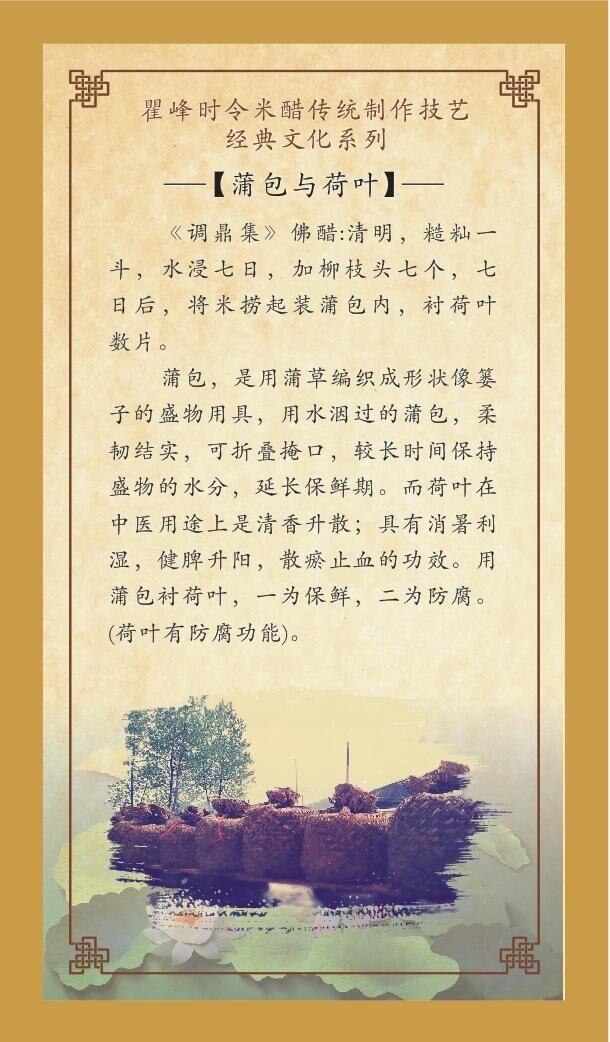 瞿峰时令米醋传统制作技艺
经典文化系列
【蒲包与荷叶】
《调鼎集》佛醋:清明，糙籼一
斗，水浸七日，加柳枝头七个，七
日后，将米捞起装蒲包内，衬荷叶
数片。
蒲包，是用蒲草编织成形状像篓
子的盛物用具，用水洇过的蒲包，柔
韧结实，可折叠掩口，较长时间保持
盛物的水分，延长保鲜期。而荷叶在
中医用途上是清香升散；具有消暑利
湿，健脾升阳，散瘀止血的功效。用
蒲包衬荷叶，一为保鲜，二为防腐。
(荷叶有防腐功能)。